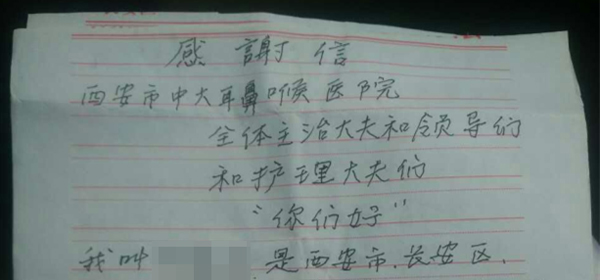 感謝信
西安市中大耳鼻喉医院
全体主治大夫和领导们
和护理大夫们
“你们好”
我叫 是西安市.长安区.